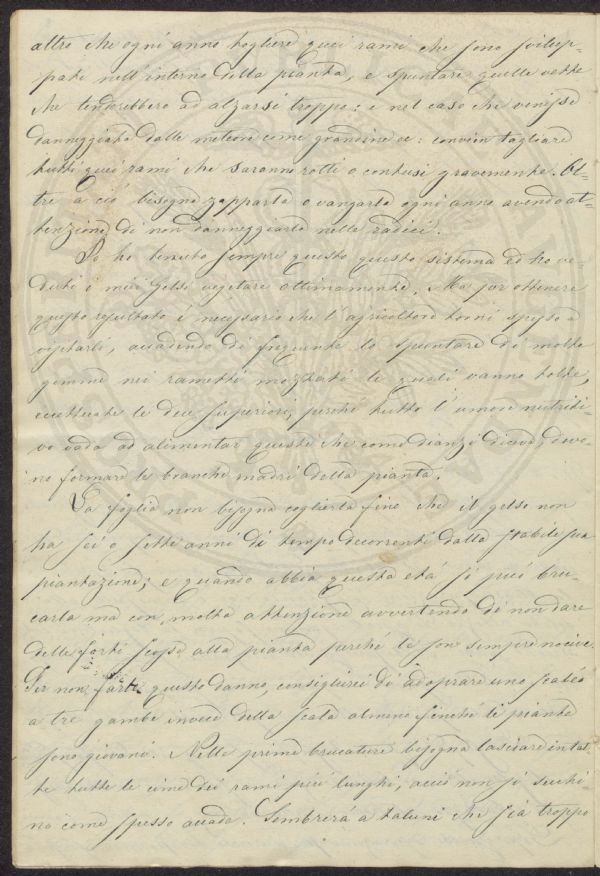 altro che ogni anno togliere quei rami che sono svilup-
pati nell'interno della pianta, e spuntare quelle vette
che tenderebbero ad alzarsi troppo: e nel caso che venisse
danneggiata dalle meteore come grandine ec: convien tagliare
tutti quei rami che saranno rotti o contusi gravemente. Ol-
tre a ciò bisogna zapparla o vangarla ogni anno avendo at-
tenzione di non danneggiarla nelle radici.
Io ho tenuto sempre questo questo sistema ed ho ve-
duti i miei Gelsi vegetare ottimamente. Ma per ottenere
questo resultato è necessario che l'agricoltore torni spesso a
visitarli, accadendo di frequente lo spuntare di molte
gemme nei rametti mozzati le quali vanno tolte,
eccettuate le due superiori, perché tutto l'umore nutriti-
vo vada ad alimentar queste che come dianzi diceva, devo-
no formare le branche madri della pianta.
La foglia non bisogna coglierla fino che il gelso non
ha sei o sette anni di tempo decorrenti dalla stabile sua
piantazione; e quando abbia questa età si può bru-
carla ma con molta attenzione avvertendo di non dare
delle forti scosse alla pianta perché le son sempre nocive.
Per non farle questo danno, consiglierei di adoprare uno scaléo
a tre gambe invece della scala almeno finché le piante
sono giovani. Nelle prime brucature bisogna lasciare intat-
te tutte le cime dei rami più lunghi, acciò non si secchi-
no come spesso accade. Sembrerà a taluni che sia troppo